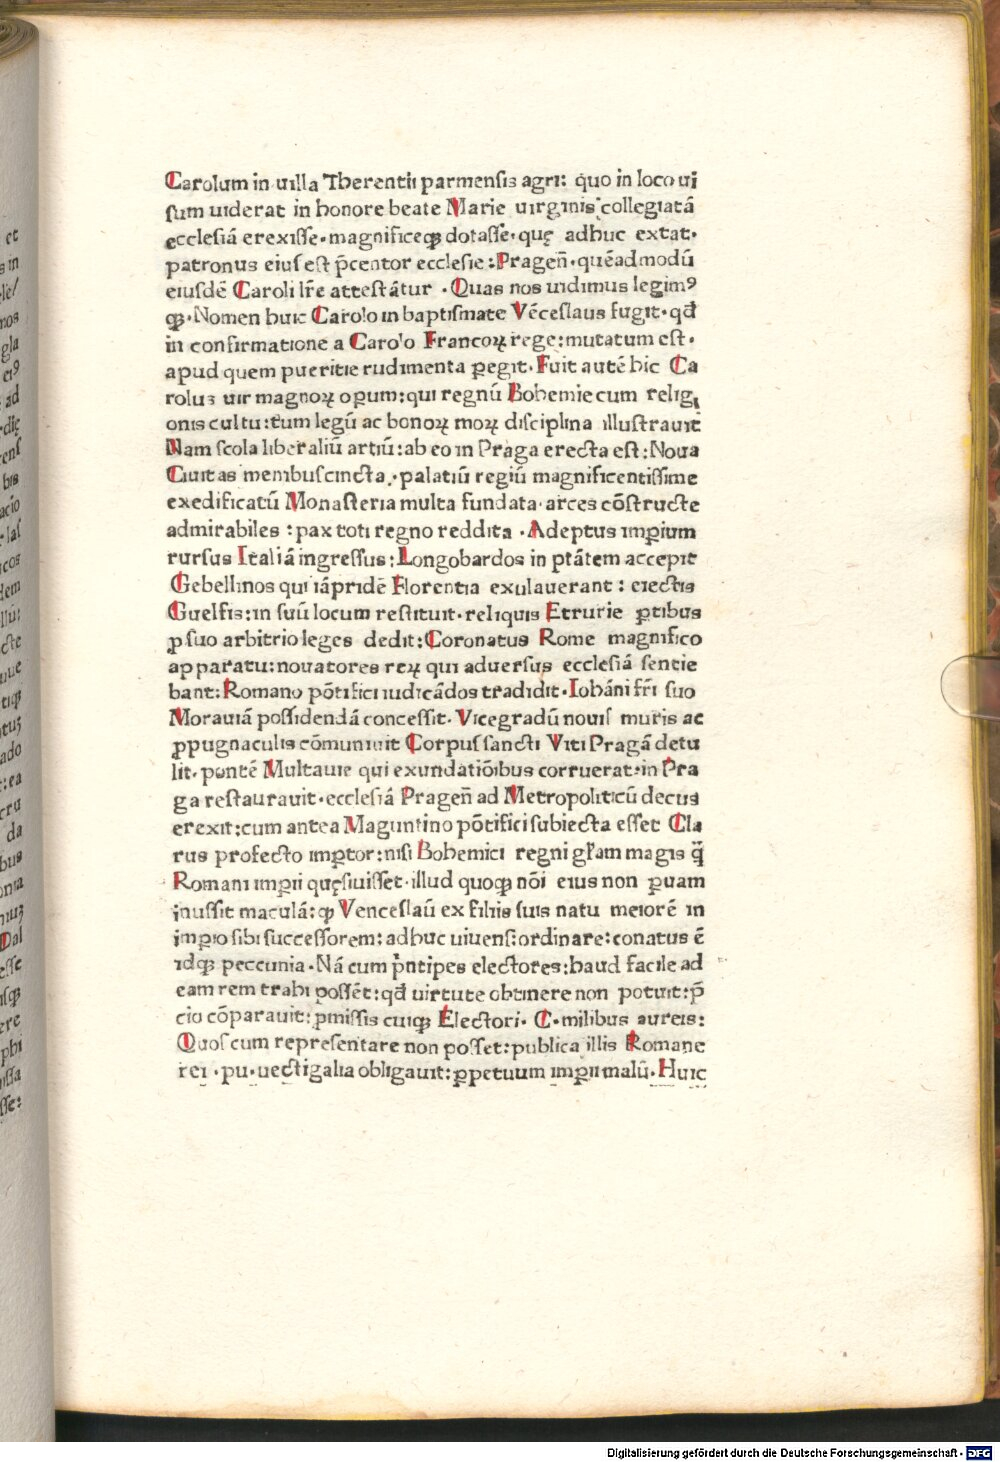 Carolum in uilla Therentii parmensis agri: quo in loco ui
ſum uiderat in honore beate Marie uirginis collegiatã
ecclesiã erexiſſe·magnificeqȝ dotaſſe·quę adhuc extat·
patronus eiuſ eſt p̃centor ecclesie:Pragen̄·quẽadmodũ
eiuſdẽ Caroli lr̃e atteſtãtur ·Quas nos uidimus legimꝰ
qȝ·Nomen huic Carolo in baptiſmate Vẽceſlaus fugit·qđ
in confirmatione a Carolo Francoꝝ rege:mutatum eſt·
apud quem pueritie rudimenta ꝑegit·Fuit autẽ hic Ca
rolus uir magnoꝝ oꝑum:qui regnũ Bohemie cum relig
onis cultu:tum legũ ac bonoꝝ moꝝ diſciplina illuſtrauit
Nam ſcola liberaliũ artiũ:ab eo in Praga erecta eſt:Noua
Ciuitas menibuſ cincta·palatiũ regiũ magnificentiſſime
exedificatũ Monaſteria multa fundata·arces cõſtructe
admirabiles :pax toti regno reddita ·Adeptus imꝑium
rurſus Italiã ingreſſus:Longobardos in ptãtem accepit
Gebellinos qui iãpridẽ Florentia exulauerant : eiectis
Guelfis:in ſuũ locum reſtituit·reliquis Etrurie ꝑtibus
ꝓ ſuo arbitrio leges dedit:Coronatus Rome magnifico
apparatu:nouatores reꝝ qui aduerſus ecclesiã ſentie
bant:Romano põtifici iudicãdos tradidit·Iohãni fr̃i ſuo
Morauiã poſſidendã conceſſit·Vicegradũ nouiſ muris ac
ꝓpugnaculis cõmuniuit Corpuſ ſancti Viti Pragã detu
lit·pontẽ Multauie qui exundatiõibus corruerat:in Pra
ga reſtaurauit·ecclesiã Pragen̄ ad Metropoliticũ decus
erexit:cum antea Maguntino põtifici ſubiecta eſſet Cla
rus profecto imꝑtor:niſi Bohemici regni gl̃am magis q̃
Romani imꝑii quęſiuiſſet·illud quoqȝ nõi eius non ꝑuam
inuſſit maculã:qȝ Venceſlaũ ex filiis ſuis natu meiorẽ in
imꝑio ſibi ſucceſſorem:adhuc uiuenſ:ordinare:conatus ẽ
idqȝ peccunia·Nã cum p̃ntipes electores:haud facile ad
eam rem trahi poſſẽt:qđ uirtute obtinere non potuit:p̃
cio cõparauit:ꝓmiſſis cuiqȝ Electori·C·milibus aureis:
Quoſ cum repreſentare non poſſet:publica illis Romane
rei ·pu·uectigalia obligauit:ꝑpetuum imꝑii malũ·Huic
Digitalisierung gefördert durch die Deutsche Forschungsgemeinschaft - DFG